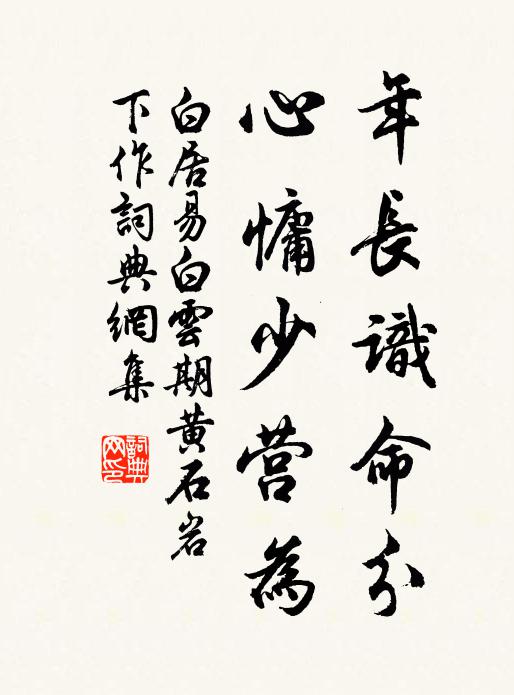 年長識命分
心慵少营為
白居易白雲期黄石岩
下作詞典網集
詞典网印